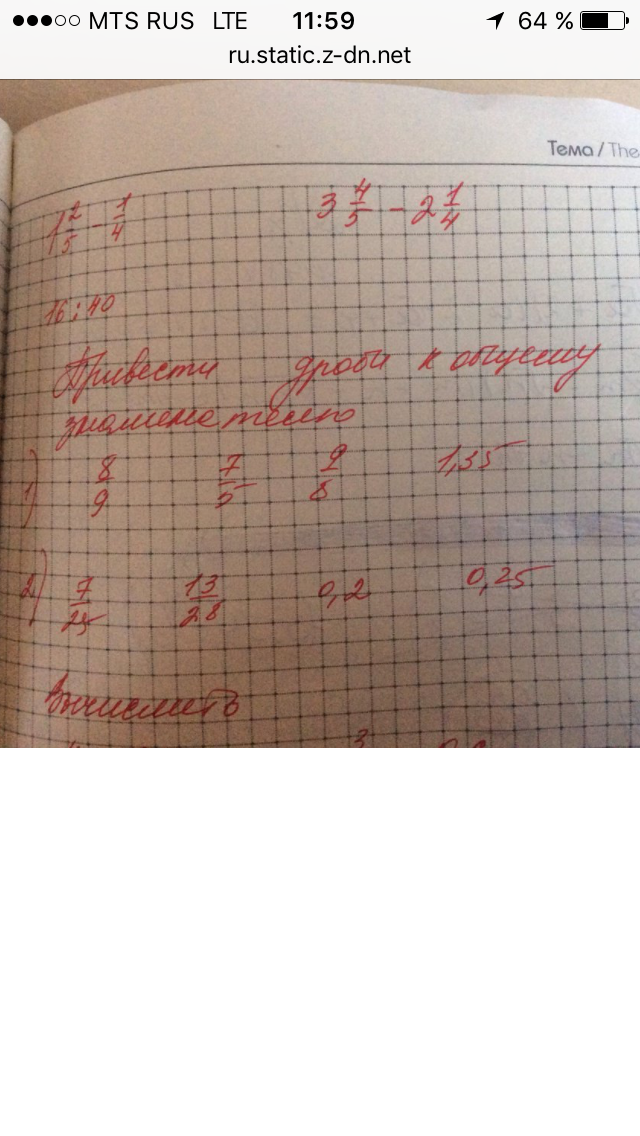 MTS RUS LTE 11:59 64 %
ru.static.z-dn.net
Тема / The
1 2/5 - 1/4 3 4/5 - 2 1/4
16 : 40
Привести дроби к общему
знаменателю
1) 8/9 7/5 9/8 1,35
2) 7/25 13/28 0,2 0,25
Вычислить